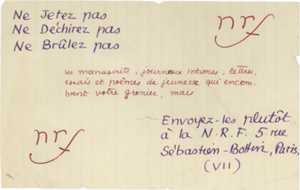 Ne Jetez pas
Ne Déchirez pas
Ne Brûlez pas
nrf
les manuscrits, journaux intimes, lettres,
essais et poèmes de jeunesse qui encom-
brent votre grenier, mais
nrf
Envoyez-les plutôt
à la N.R.F. 5 rue
Sébastien-Bottin, Paris,
(VII)